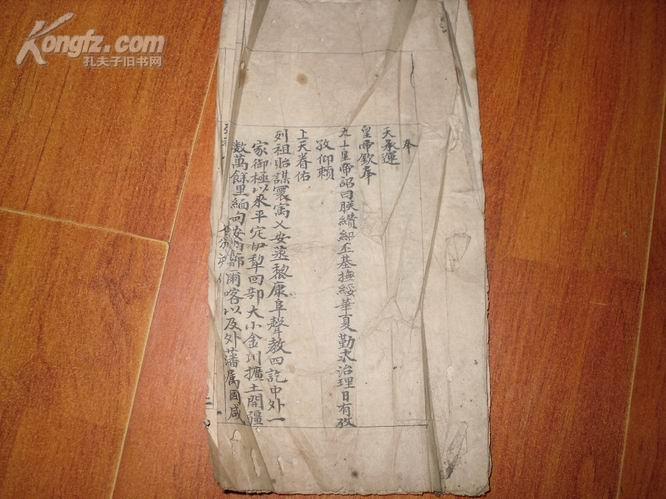 Kongfz.com
孔夫子旧书网
奉
天承運
皇帝欽奉
九十皇帝詔曰朕纘紹丕基撫綏華夏勤求治理日有孜
孜仰賴
上天眷佑
列祖貽謀寰寓乂安蒸黎康阜聲教四訖中外一
家御極以來平定伊犁回部大小金川擴土開疆
數萬餘里緬甸安南部爾喀以及外藩属國咸